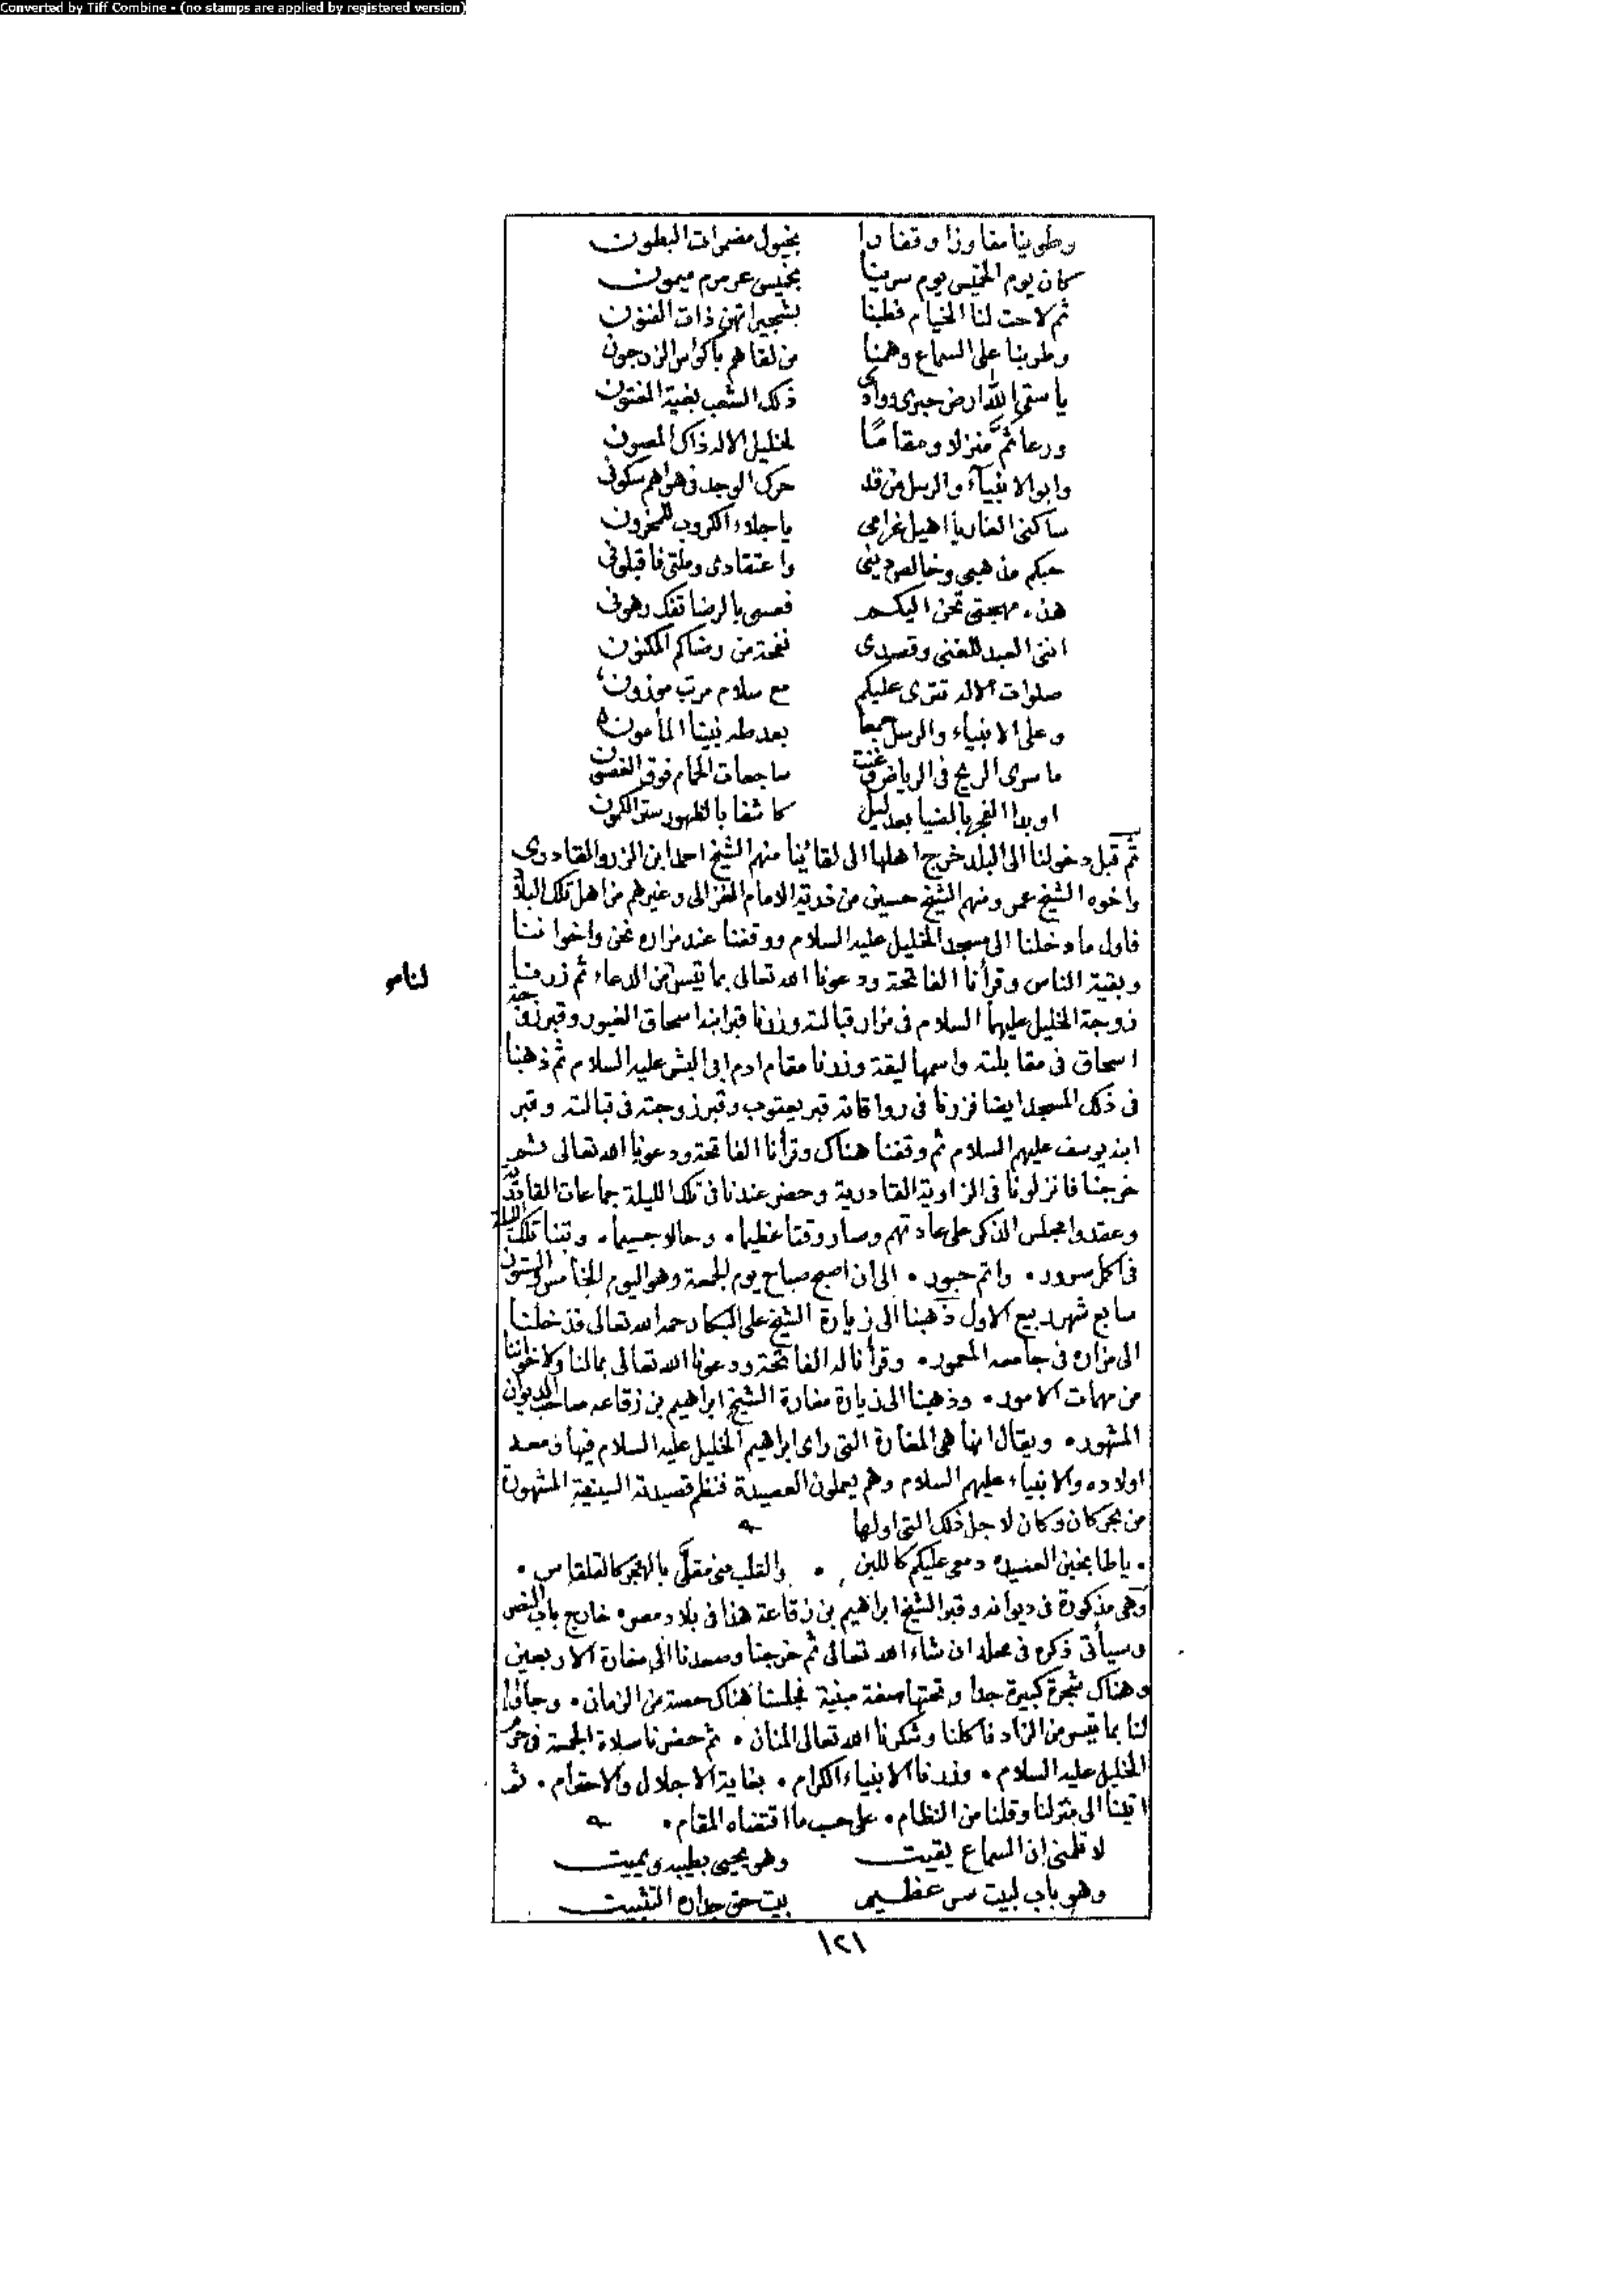 Converted by Tiff Combine - (no stamps are applied by registered version)
وطوينا مفاوزا وقفارا بخيول مضمرات البطون
كان يوم الخميس يوم سرينا بخميس عرمرم ميمون
ثم لاحت لنا الخيام فطبنا ذات الفنون
وطربنا على السماع وهمنا من لقاهم باكؤس الزرجون
يا سقى الله ارض حبرى ووادى ذلك الشعب بغية المفتون
ورعا ثم منزلا ومقاما لخليل الاله ذاك المصون
وابو الانبياء والرسل من قد حرك الوجد فى هواهم سكونى
ساكنى الغار يا اهيل غرامى يا جلاء الكروب للمحزون
حبكم مذهبى وخالص دينى واعتقادى وملتى فاقبلونى
هذه مهجتى تحن اليكم فعسى بالرضا تفك رهونى
اننى العبد للغنى وقصدى نفحة من رضاكم المكنون
صلوات الاله تترى عليكم مع سلام مرتب موزون
وعلى الانبياء والرسل جمعا بعد طه نبينا المأمون
ما سرى الريح فى الرياض وغنت ساجعات الحمام فوق الغصون
او بدا الفجر بالضيا بعد ليل كاشفا بالظهور ستر الكمون
ثم قبل دخولنا الى البلد خرج اهلها الى لقائنا منهم الشيخ احمد ابن الزرو القادرى
واخوه الشيخ عمر ومنهم الشيخ حسين من ذرية الامام الغزالى وغيرهم من اهل تلك البلاد
فاول ما دخلنا الى مسجد الخليل عليه السلام ووقفنا عند مزاره نحن واخواننا
وبقية الناس وقرأنا الفاتحة ودعونا الله تعالى بما تيسر من الدعاء ثم زرنا
زوجة الخليل عليهما السلام فى مزار قبالته وزرنا قبر ابنه اسحاق الغيور وقبر زوجة
اسحاق فى مقابلته واسمها ليقة وزرنا مقام ادم ابى البشر عليه السلام ثم ذهبنا
فى ذلك المسجد ايضا فزرنا فى رواقاته قبر يعقوب وقبر زوجته فى قبالته وقبر
ابنه يوسف عليهم السلام ثم وقفنا هناك وقرأنا الفاتحة ودعونا الله تعالى ثم
خرجنا فانزلونا فى الزاوية القادرية وحضر عندنا فى تلك الليلة جماعات القادرية
وعقدوا مجلس الذكر على عادتهم وصار وقتا عظيما • وحالا جسيما • وبتنا تلك الليلة
فى اكمل سرور • واتم حبور • الى ان اصبح صباح يوم الجمعة وهو اليوم الخامس والستون
سابع شهر ربيع الاول ذهبنا الى زيارة الشيخ على البكا رحمه الله تعالى فدخلنا
الى مزاره فى جامعه المعمور • وقرأنا له الفاتحة ودعونا الله تعالى بمالنا ولاخواننا
من مهمات الامور • وذهبنا الى زيارة مغارة الشيخ ابراهيم بن زقاعه صاحب الديوان
المشهور • ويقال انها هى المغارة التى راى ابراهيم الخليل عليه السلام فيها ومعه
اولاده والانبياء عليهم السلام وهم يعملون العصيدة فنظم قصيدته المشهورة
من بحر كان وكان لاجل ذلك التى اولها
• يا طابخين العصيده دمعى عليكم كاللبن • والقلب منى مقلى بالهجر كالقلقاس •
وهى مذكورة فى ديوانه وقبر الشيخ ابراهيم بن زقاعة هذا فى بلاد مصر خارج باب النصر
وسيأتى ذكره فى محله ان شاء الله تعالى ثم خرجنا وصعدنا الى مغارة الاربعين
وهناك شجرة كبيرة جدا وتحتها صفة مبنية فجلسنا هناك حصة من الزمان • وجاؤا
لنا بما تيسر من الزاد فاكلنا وشكرنا الله تعالى المنان • ثم حضرنا صلاة الجمعة فى حرم
الخليل عليه السلام • وزرنا الانبياء الكرام • بغاية الاجلال والاحترام • ثم
اتينا الى منزلنا وقلنا من النظام • على حسب ما اقتضاه المقام •
لا تلمنى ان السماع يقيت وهو يحيى بطيبه ويميت
وهو باب لبيت سر عظيم بيت حق جداره التثبيت
١٢١